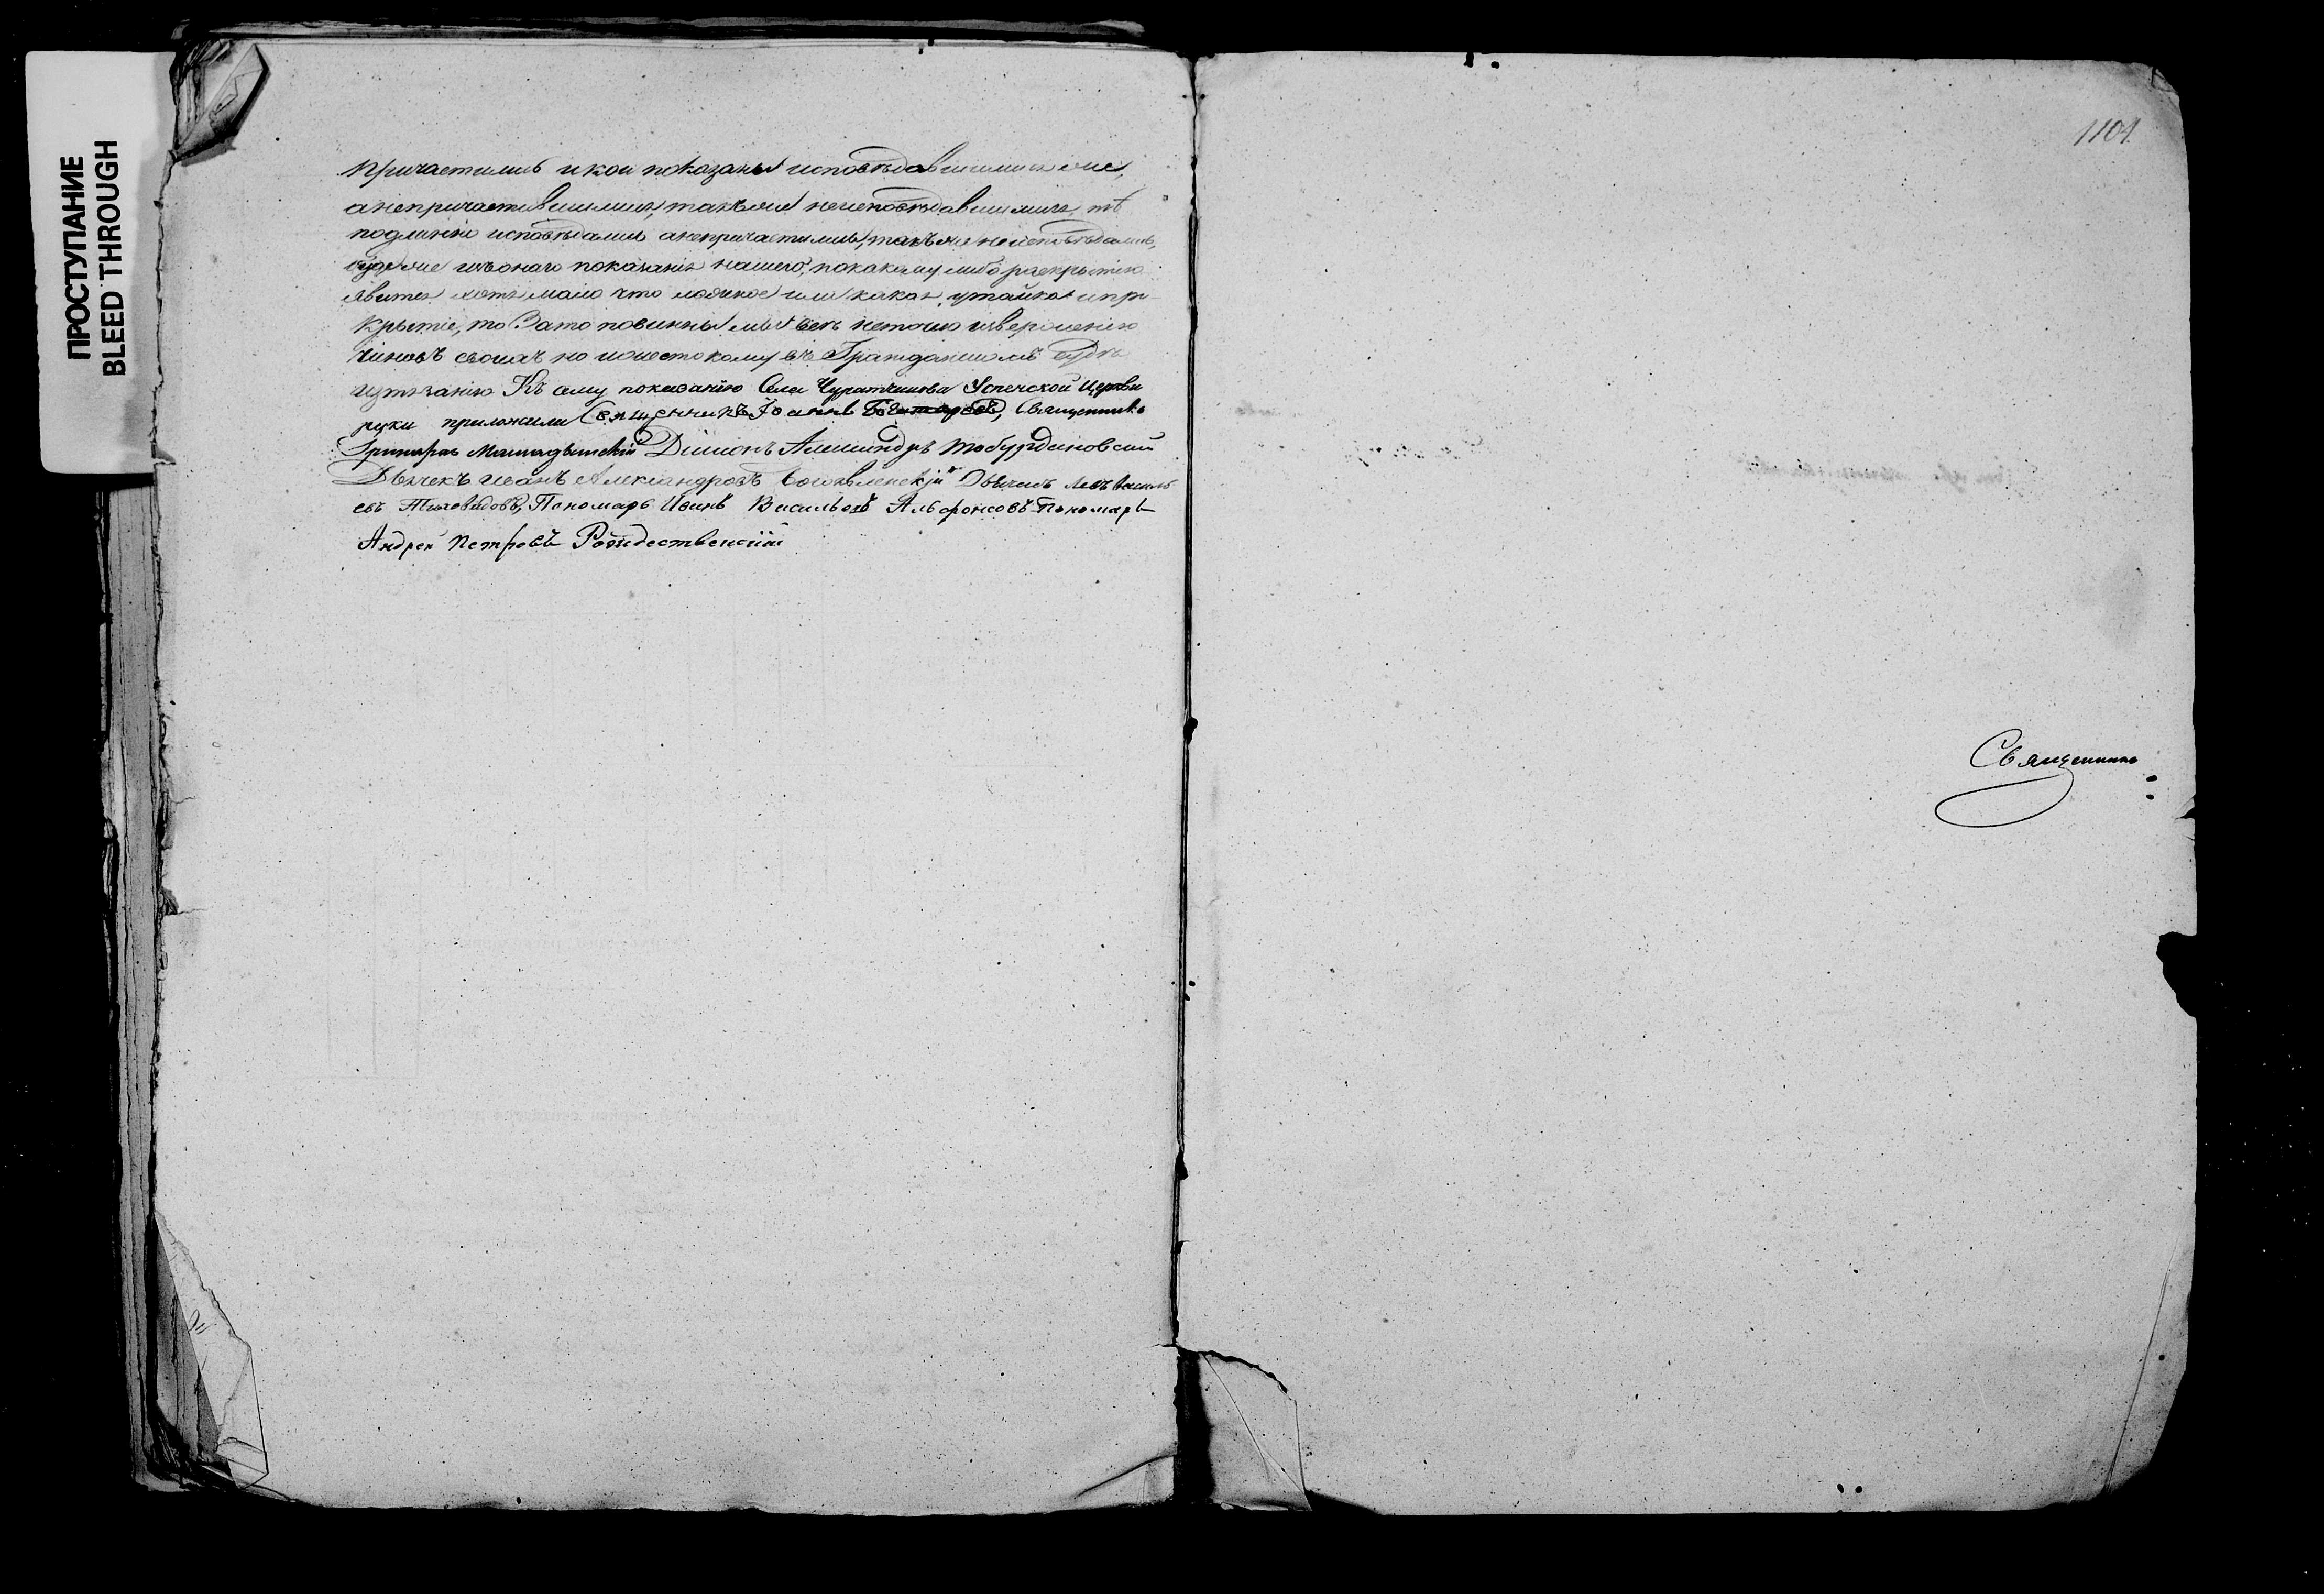 ПРОСТУПАНИЕ
BLEED THROUGH
1101.
причастились и кои показаны исповѣдавшимися же,
а непричастившимися, такъ же неисповѣдавшимися, тѣ
подлинно исповѣдались а непричастились, такъ же неисповѣдались,
будеже изъ онаго показанія нашего, по какому либо раскрытію
явится хотя мало что ложное или какая, утайка и при-
крытіе, то Зато повинны мы всѣ неточію изверженію
чиновъ своихъ но и жестокому въ Гражданскомъ судѣ
истязанію Къ сему показанію Села Чураткинова Успенской Церкви
руки приложили Священникъ Іоаннъ, Священникъ
Діаконъ Александръ Тобурдановскій
Дьячекъ Иванъ Александровъ Богоявленскій Дьячекъ Левъ Василь
евъ Тиховидовъ, Пономарь Иванъ Васильевъ Альфонсовъ Пономарь
Андрей Петровъ Рождественскій
Священникъ